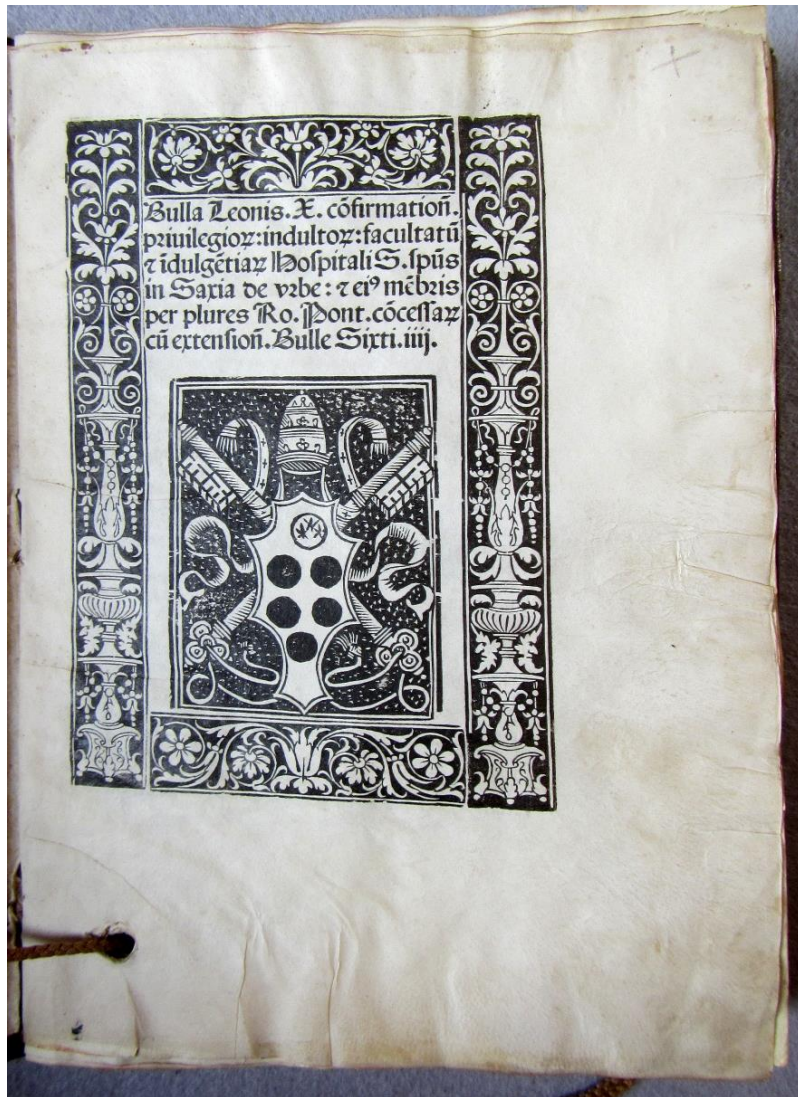 Bulla Leonis.X. cõfirmatioñ.
priuilegioꝝ:indultoꝝ:facultatũ
⁊ ĩdulgẽtiaꝝ Hospitali S. spũs
in Saxia de vrbe: ⁊ eiꝰ mẽbris
per plures Ro. Pont. cõcessaꝝ
cũ extensioñ. Bulle Sixti.iiij.